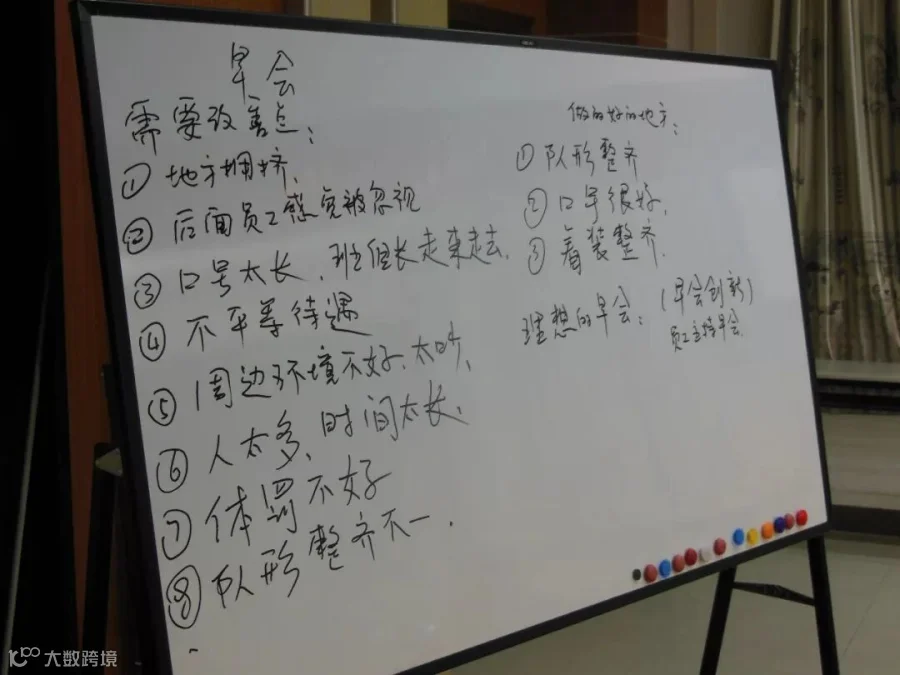 早会
需要改善点：
① 地方拥挤、
② 后面员工感觉被忽视
③ 口号太长、班组长走来走去、
④ 不平等待遇
⑤ 周边环境不好、太吵、
⑥ 人太多、时间太长、
⑦ 体罚不好
⑧ 队形整齐不一．
做的好的地方：
① 队形整齐
② 口号很好、
③ 着装整齐．
理想的早会：(早会创新)
员工主持早会．
大数跨境